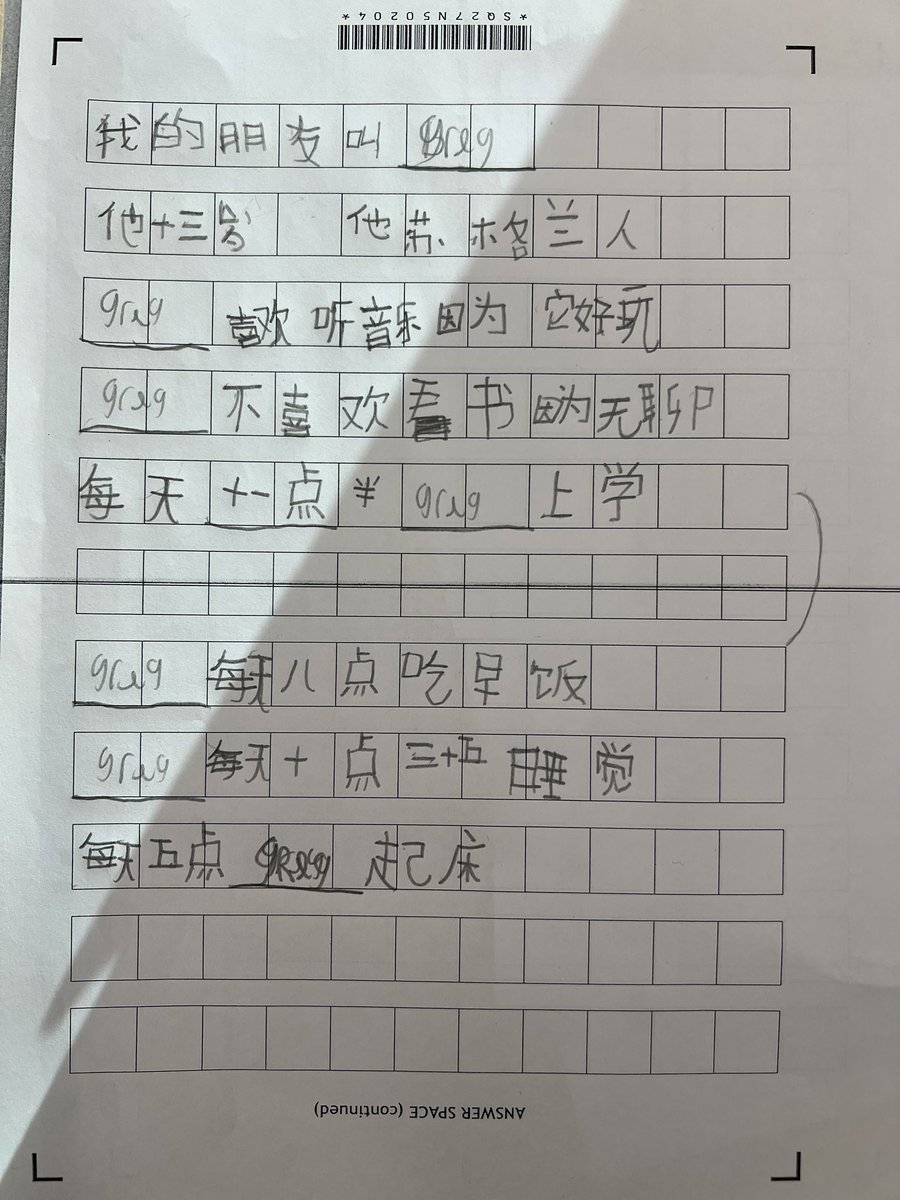 *SQ27N50204*
我的朋友叫 greg
他十三岁 他苏格兰人
greg 喜欢听音乐因为它好玩
greg 不喜欢看书因为无聊
每天十一点半 greg 上学
greg 每天八点吃早饭
greg 每天十点三十五睡觉
每天五点 greg 起床
ANSWER SPACE (continued)